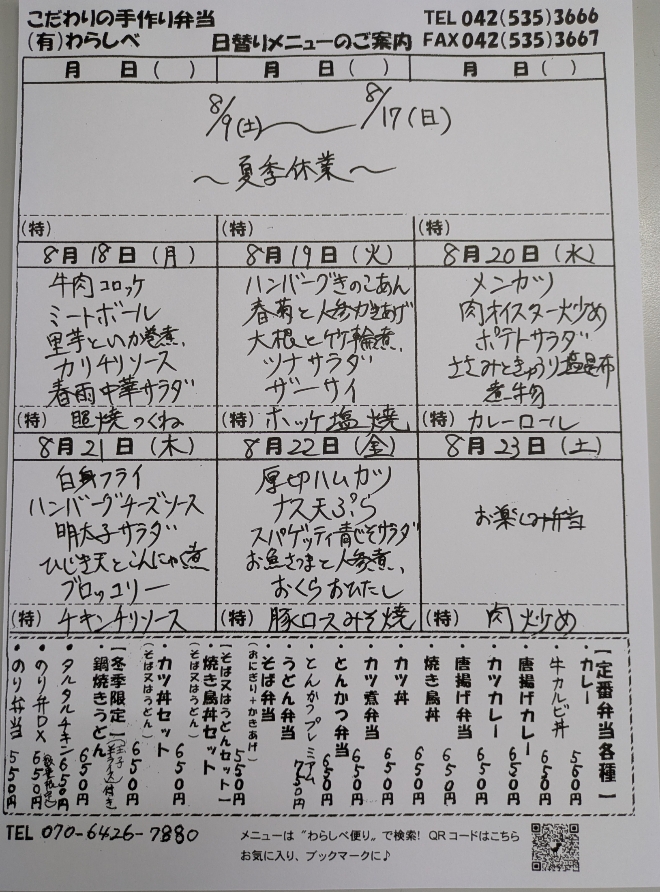 こだわりの手作り弁当
(有)わらしべ 日替りメニューのご案内
TEL 042(535)3666
FAX 042(535)3667
月 日( ) 月 日( ) 月 日( )
8/9(土)〜8/17(日)
〜夏季休業〜
(特) (特) (特)
8月18日(月)
牛肉コロッケ
ミートボール
里芋といか巻煮、
カリチリソース
春雨中華サラダ
(特) 照焼つくね
8月19日(火)
ハンバーグきのこあん
春菊と人参かきあげ
大根と竹輪煮、
ツナサラダ
ザーサイ
(特) ホッケ塩焼
8月20日(水)
メンカツ
肉オイスター炒め
ポテトサラダ
ささみときゅうり塩昆布
煮物
(特) カレーロール
8月21日(木)
白身フライ
ハンバーグチーズソース
明太子サラダ
ひじき天とこんにゃく煮
ブロッコリー
(特) チキンチリソース
8月22日(金)
厚切ハムカツ
ナス天ぷら
スパゲッティ青じそサラダ
お魚さつまと人参煮、
おくらおひたし
(特) 豚ロースみそ焼
8月23日(土)
お楽しみ弁当
(特) 肉炒め
【定番弁当各種】
・カレー 550円
・牛カルビ丼 650円
・唐揚げカレー 650円
・カツカレー 650円
・唐揚げ弁当 650円
・焼き鳥丼 650円
・カツ丼 650円
・カツ煮弁当 650円
・とんかつ弁当 650円
・とんかつプレミアム 750円
・うどん弁当
・そば弁当 550円
(おにぎり+かきあげ)
【そば又はうどんセット】
・焼き鳥丼セット 650円
(そば又はうどん)
・カツ丼セット 650円
(そば又はうどん)
【冬季限定】
・鍋焼きうどん 650円
・タルタルチキン 650円
・のり弁DX 650円
・のり弁当 550円
TEL 070-6426-7880
メニューは"わらしべ便り"で検索! QRコードはこちら
お気に入り、ブックマークに♪